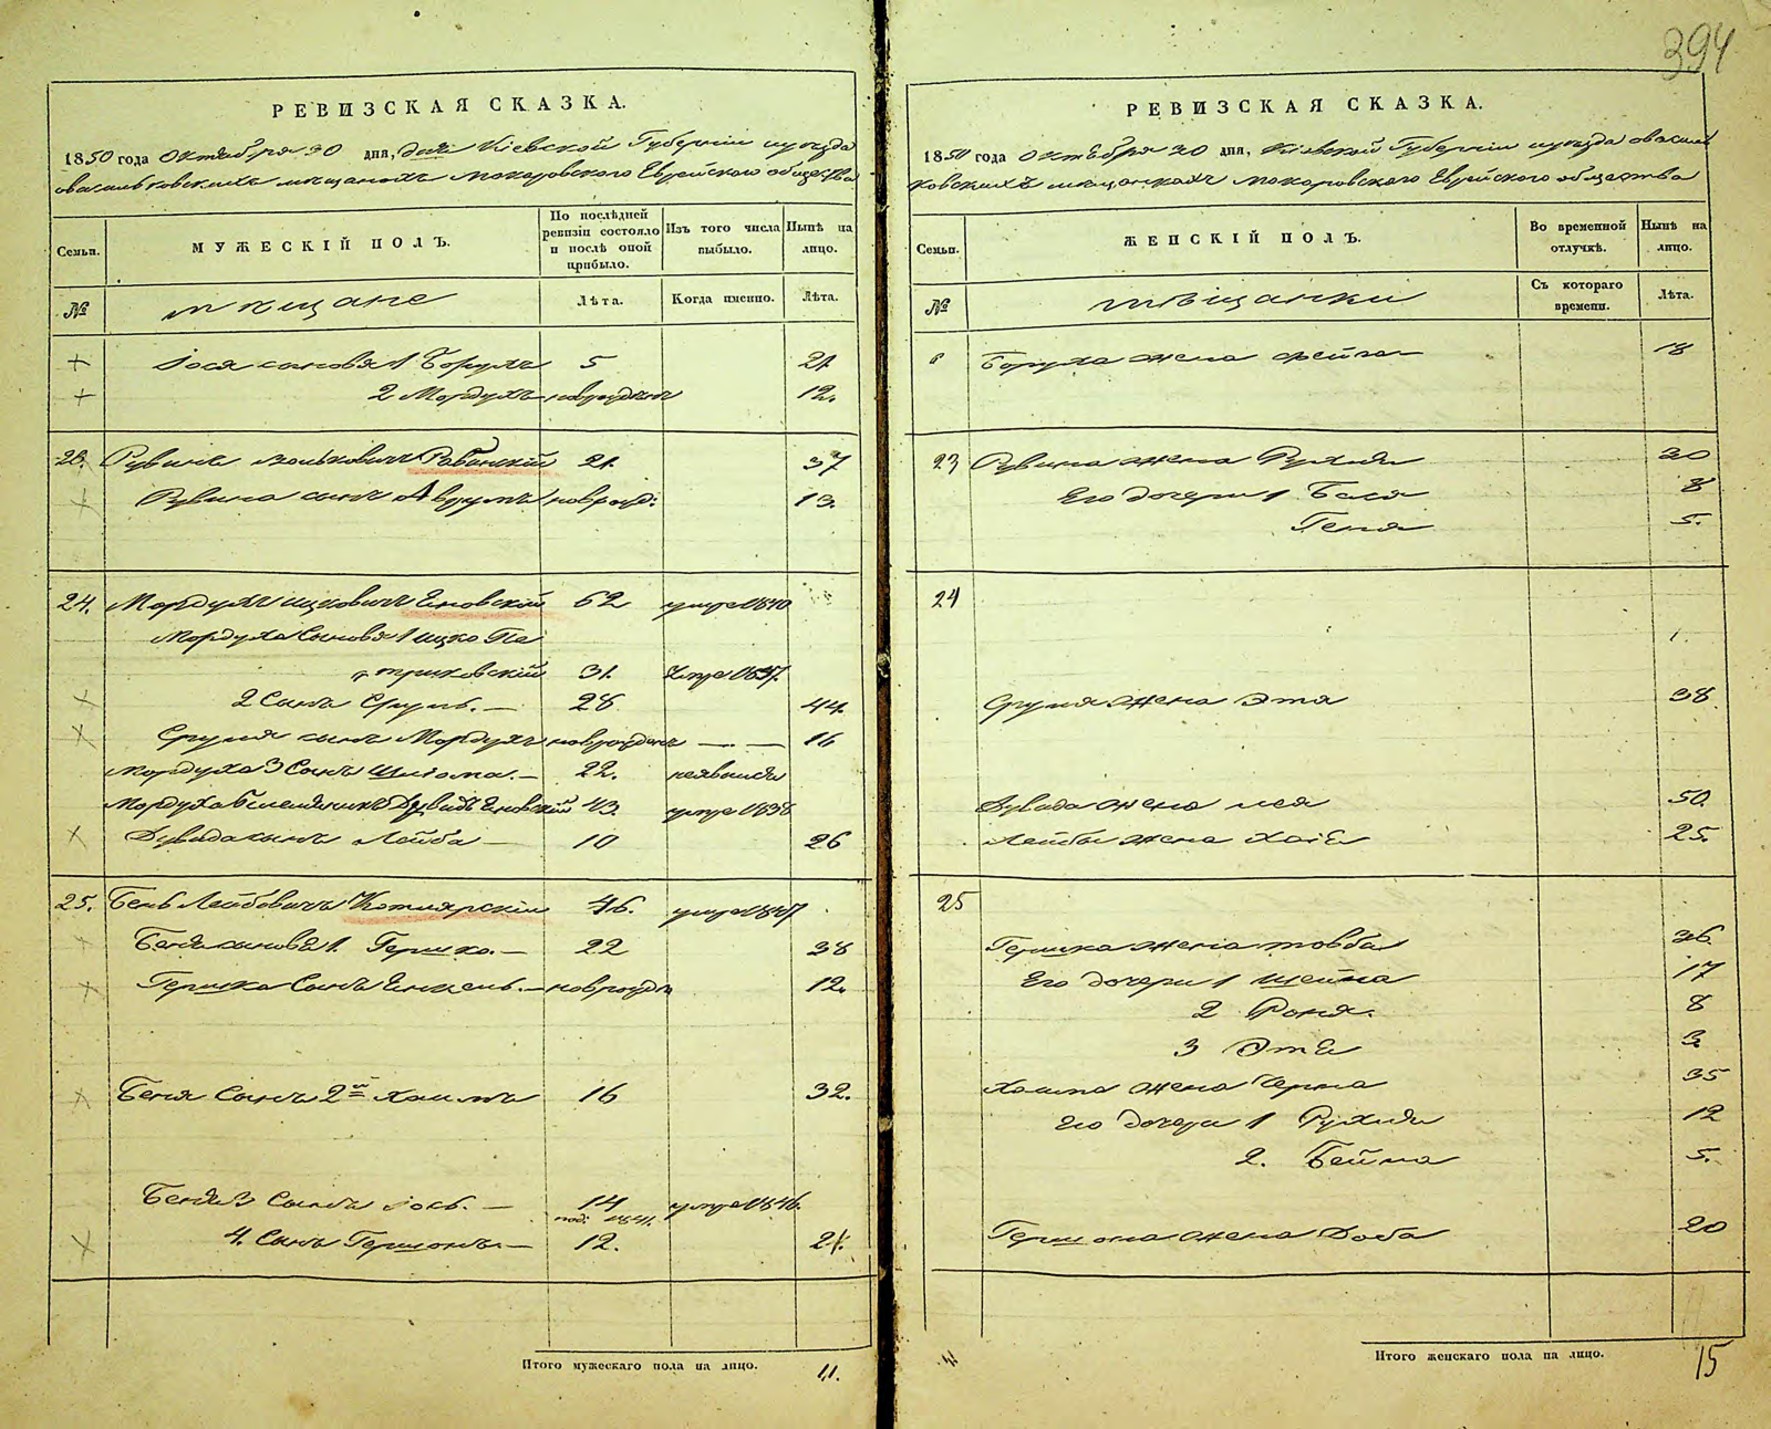 394
РЕВИЗСКАЯ СКАЗКА.
1850 года Октября 30 дня, Кіевской Губерніи уѣзда
овасильковскихъ мѣщанахъ Макаровского Еврейского общества
Семьи.
МУЖЕСКІЙ ПОЛЪ.
По послѣдней ревизіи состояло и послѣ оной прибыло.
Изъ того числа выбыло.
Нынѣ на лицо.
№
мѣщане
Лѣта.
Когда именно.
Лѣта.
Іося сыновя 1 Борухъ 5 21
2 Мордухъ новрожденъ 12.
23. Рувинъ Вольковичъ Рабинскій 21. 37
Рувина сынъ Аврумъ новрожд: 13.
24. Мордухъ Ицковичъ Еновскій 62 умре 1840
Мордуха Сыновя 1 Ицко Пе
триковскій 31. Умре 1837.
2 Сынъ Сруль. — 28 44.
Сруля сынъ Мордухъ новрожденъ — — 16
Мордуха 3 Сынъ Шліома. — 22. неявился
Мордуха племяникъ Дувидъ Еновскій 43. умре 1838
Дувида сынъ Лейба — 10 26
25. Бень Лейбовичъ Котлярскій 46. умре 1847
Беня сыновя 1. Гершко. — 22 38
Гершка Сынъ Енкель. — новрожд 12.
Беня Сынъ 2й Хаимъ 16 32.
Беня 3 Сынъ Іось. — 14 умре 1846.
4. Сынъ Гершонъ — 12. 21.
Итого мужескаго пола на лицо. 11.
РЕВИЗСКАЯ СКАЗКА.
1850 года Октября 30 дня, Кіевской Губерніи уѣзда овасиль
ковскихъ мѣщанкахъ Макаровского Еврейского общества
Семьи.
ЖЕНСКІЙ ПОЛЪ.
Во временной отлучкѣ.
Нынѣ на лицо.
№
мѣщанки
Съ котораго времени.
Лѣта.
Боруха жена Фейга 18
23 Рувина жена Рухля 30
Его дочери 1 Бася 8
Геня 5.
24
Сруля жена Этя 38
Дувида жена Лея 50.
Лейбы жена Хаіа 25.
25
Гершка жена Товба 36
Его дочери 1 Шейна 17
2 Роня. 8
3 Этя 3
Хаима жена Черна 35
Его дочери 1 Рухля 12
2. Бейла 5.
Гершона жена Доба 20
Итого женскаго пола на лицо. 15